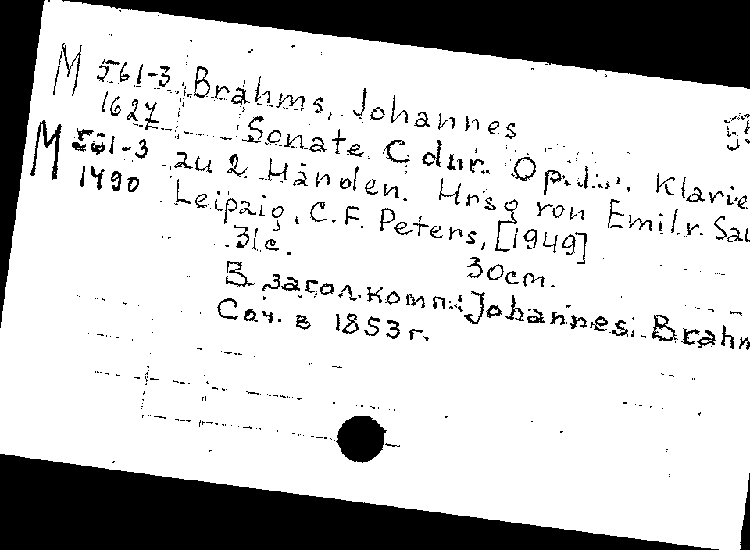 М 561-3 Brahms, Johannes
1627 Sonate C dur. Op. Klavie
М 561-3 zu 2 Händen. Hrsg von Emil v. Sau
1490 Leipzig, C. F. Peters, [1949]
31c. 30cm.
В загол. комп.: Johannes Brahm
Соч. в 1853 г.